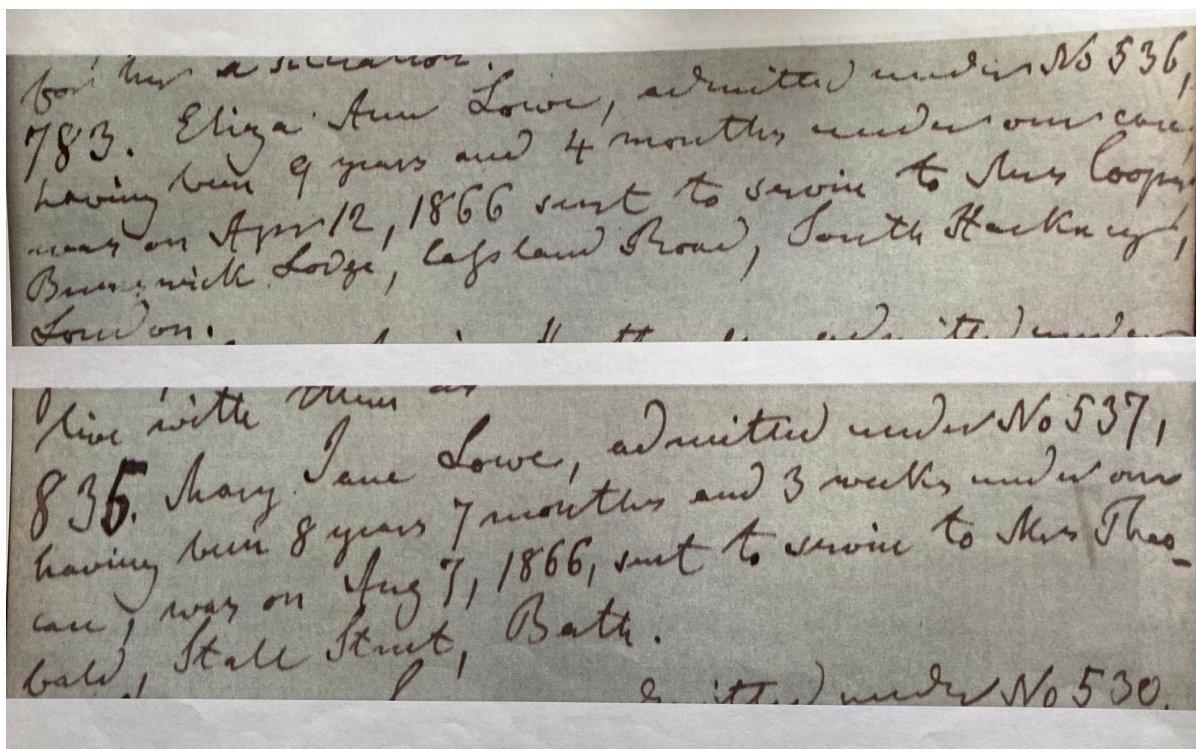 for her a situation.
783. Eliza Ann Lowe, admitted under No 536,
having been 9 years and 4 months under our care,
was on Apr 12, 1866 sent to service to Mrs Cooper,
Brunswick Lodge, Cassland Road, South Hackney,
London.
admitted under
live with them as
835. Mary Jane Lowe, admitted under No 537,
having been 8 years 7 months and 3 weeks under our
care, was on Aug 7, 1866, sent to service to Mrs Theo-
bald, Stall Street, Bath.
admitted under No 530.